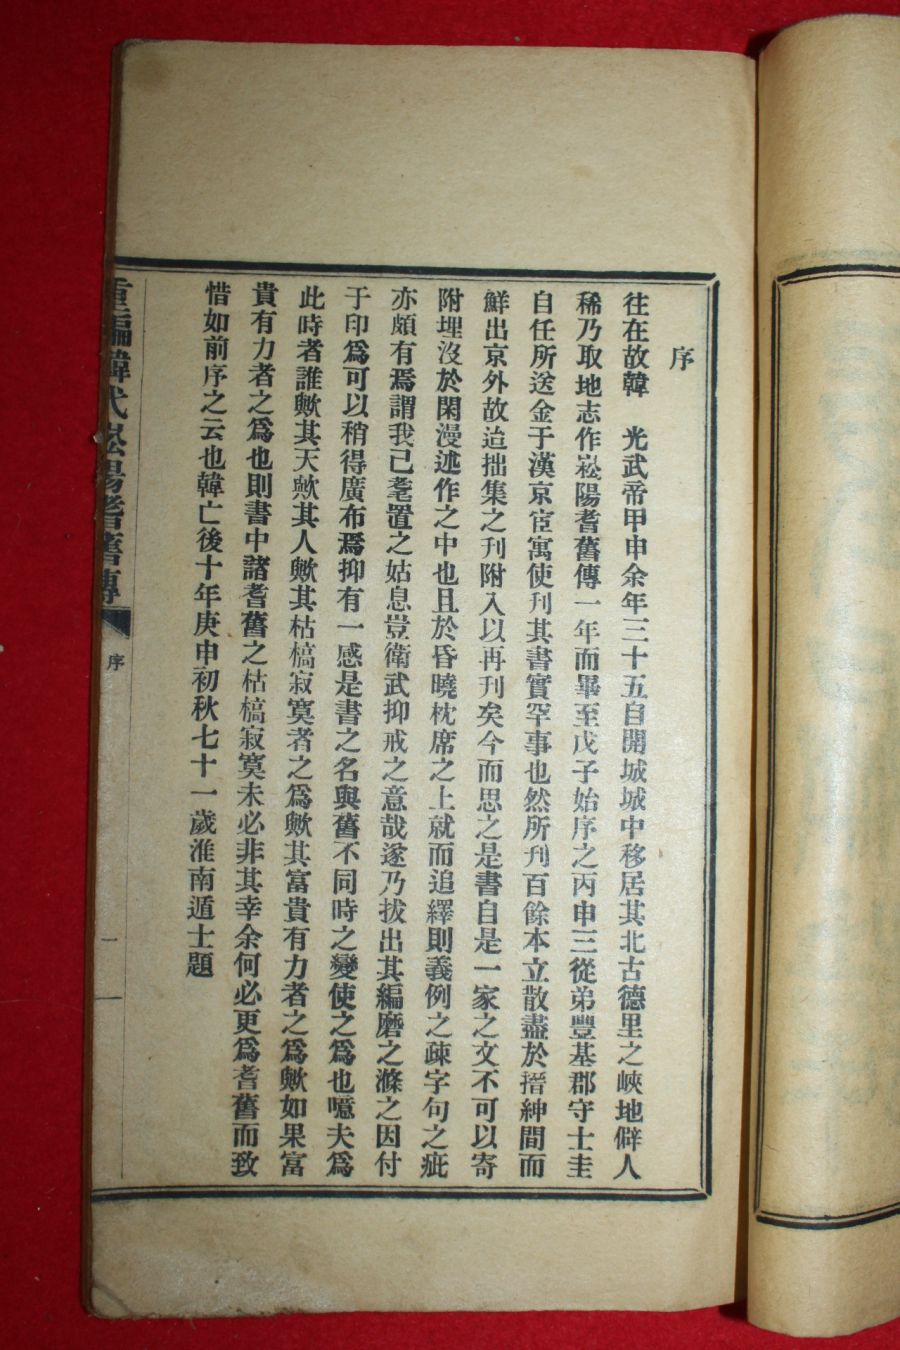 序
往在故韓　光武帝甲申余年三十五自開城城中移居其北古德里之峽地僻人
稀乃取地志作崧陽耆舊傳一年而畢至戊子始序之丙申三從弟豐基郡守士圭
自任所送金于漢京宦寓使刊其書實罕事也然所刋百餘本立散盡於搢紳間而
鮮出京外故迨拙集之刊附入以再刊矣今而思之是書自是一家之文不可以寄
附埋沒於閑漫述作之中也且於昏曉枕席之上就而追繹則義例之疎字句之疵
亦頗有焉謂我已耄置之姑息豈衛武抑戒之意哉遂乃拔出其編磨之滌之因付
于印爲可以稍得廣布焉抑有一感是書之名與舊不同時之變使之爲也噫夫爲
此時者誰歟其天歟其人歟其枯槁寂寞者之爲歟其富貴有力者之爲歟如果富
貴有力者之爲也則書中諸耆舊之枯槁寂寞未必非其幸余何必更爲耆舊而致
惜如前序之云也韓亡後十年庚申初秋七十一歲淮南遁士題
重編韓代崧陽耆舊傳
序
一